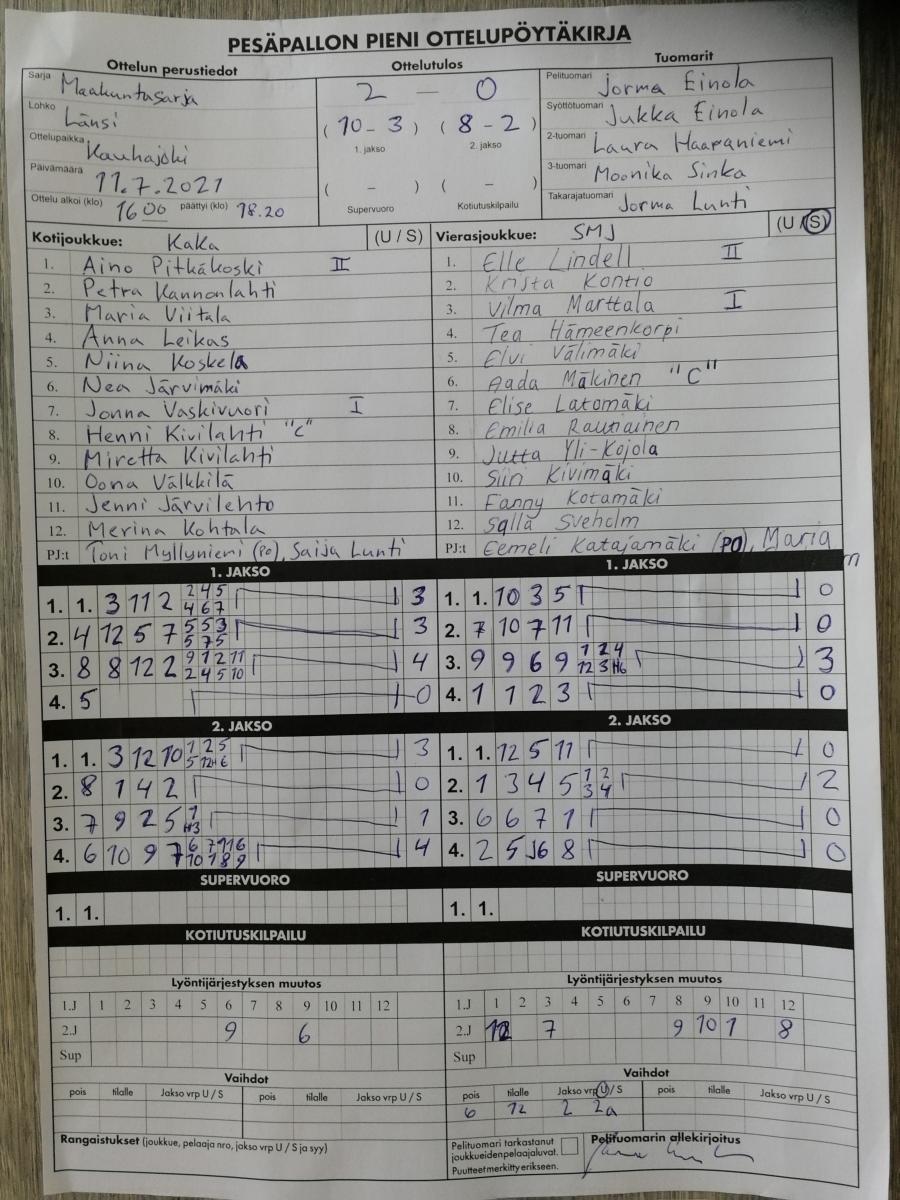 PESÄPALLON PIENI OTTELUPÖYTÄKIRJA
Ottelun perustiedot Ottelutulos Tuomarit
Sarja Maakuntasarja 2 — 0 Pelituomari Jorma Einola
Lohko Länsi (10 - 3) (8 - 2) Syöttötuomari Jukka Einola
Ottelupaikka Kauhajoki 1. jakso 2. jakso 2-tuomari Laura Haapaniemi
Päivämäärä 11.7.2021 ( - ) ( - ) 3-tuomari Moonika Sinka
Ottelu alkoi (klo) 16 00 päättyi (klo) 18.20 Supervuoro Kotiutuskilpailu Takarajatuomari Jorma Lunti
Kotijoukkue: KaKa (U / S) Vierasjoukkue: SMJ (U / S)
1. Aino Pitkäkoski II 1. Elle Lindell II
2. Petra Kannonlahti 2. Krista Kontio
3. Maria Viitala 3. Vilma Marttala I
4. Anna Leikas 4. Tea Hämeenkorpi
5. Niina Koskela 5. Elvi Välimäki
6. Nea Järvimäki 6. Aada Mäkinen "C"
7. Jonna Vaskivuori I 7. Elise Latomäki
8. Henni Kivilahti "C" 8. Emilia Rautiainen
9. Miretta Kivilahti 9. Jutta Yli-Kojola
10. Oona Välkkilä 10. Siiri Kivimäki
11. Jenni Järvilehto 11. Fanny Kotamäki
12. Merina Kohtala 12. Salla Sveholm
PJ:t Toni Myllyniemi (PO), Saija Lunti PJ:t Eemeli Katajamäki (PO), Maria
1. JAKSO 1. JAKSO
1. 1. 3 11 2 2 4 5 4 6 7 3 1. 1. 10 3 5 0
2. 4 12 5 7 5 5 3 5 7 5 3 2. 7 10 7 11 0
3. 8 8 12 2 9 1 2 11 2 4 5 10 4 3. 9 9 6 9 1 2 4 12 3 H6 3
4. 5 0 4. 1 1 2 3 0
2. JAKSO 2. JAKSO
1. 1. 3 12 10 1 2 5 5 12H 6 3 1. 1. 12 5 11 0
2. 8 1 4 2 0 2. 1 3 4 5 1 2 3 4 2
3. 7 9 2 5 1 H3 1 3. 6 6 7 1 0
4. 6 10 9 7 4 4. 2 5 J6 8 0
SUPERVUORO SUPERVUORO
1. 1. 1. 1.
KOTIUTUSKILPAILU KOTIUTUSKILPAILU
Lyöntijärjestyksen muutos Lyöntijärjestyksen muutos
1.J 1 2 3 4 5 6 7 8 9 10 11 12 1.J 1 2 3 4 5 6 7 8 9 10 11 12
2.J 9 6 2.J 12 7 9 10 1 8
Sup Sup
Vaihdot Vaihdot
pois tilalle Jakso vrp U / S pois tilalle Jakso vrp U / S pois tilalle Jakso vrp U / S pois tilalle Jakso vrp U / S
6 12 2 2a
Rangaistukset (joukkue, pelaaja nro, jakso vrp U / S ja syy) Pelituomari tarkastanut Pelituomarin allekirjoitus
joukkueiden pelaajaluvat.
Puutteet merkitty erikseen.